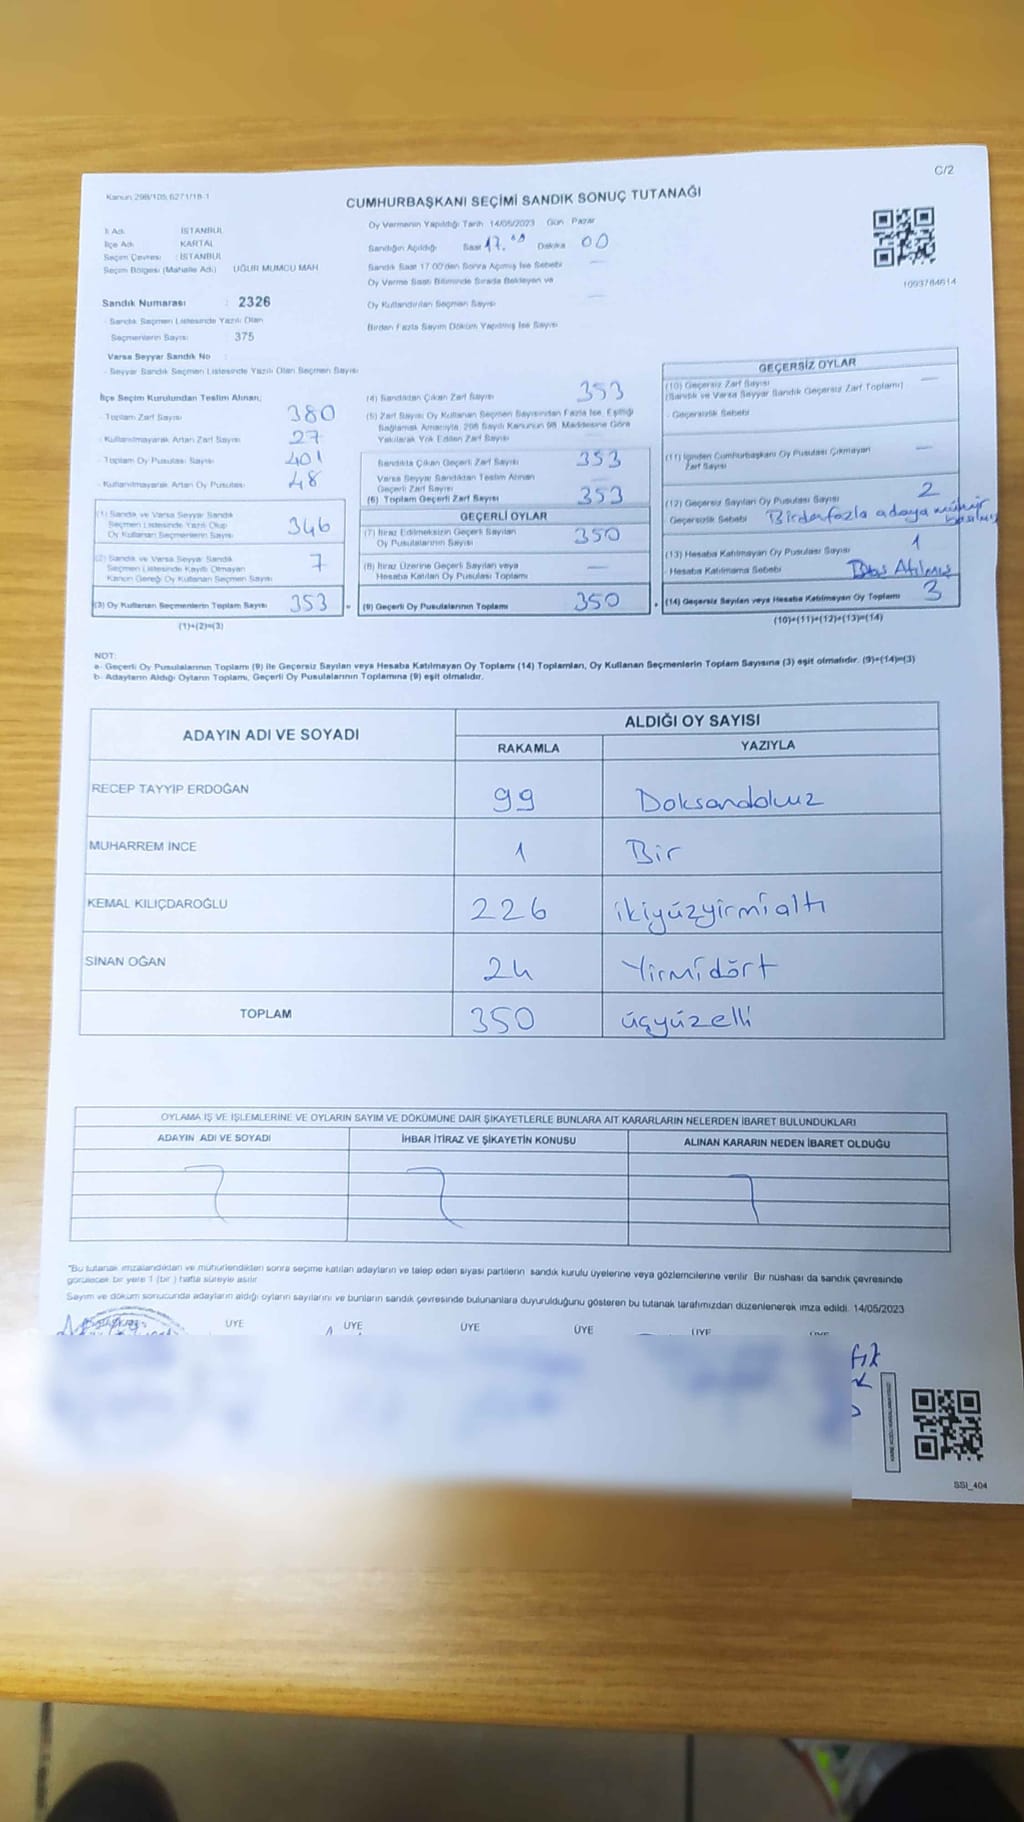 C/2
Kanun 298/105,6271/18-1
CUMHURBAŞKANI SEÇİMİ SANDIK SONUÇ TUTANAĞI
İl Adı : İSTANBUL
İlçe Adı : KARTAL
Seçim Çevresi : İSTANBUL
Seçim Bölgesi (Mahalle Adı) : UĞUR MUMCU MAH
Sandık Numarası : 2326
- Sandık Seçmen Listesinde Yazılı Olan
Seçmenlerin Sayısı : 375
Varsa Seyyar Sandık No :
- Seyyar Sandık Seçmen Listesinde Yazılı Olan Seçmen Sayısı
Oy Vermenin Yapıldığı Tarih 14/05/2023 Gün : Pazar
Sandığın Açıldığı Saat 17.00 Dakika 00
Sandık Saat 17:00'den Sonra Açılmış İse Sebebi
Oy Verme Saati Bitiminde Sırada Bekleyen ve
Oy Kullandırılan Seçmen Sayısı
Birden Fazla Sayım Döküm Yapılmış İse Sayısı
1093784614
İlçe Seçim Kurulundan Teslim Alınan;
- Toplam Zarf Sayısı 380
- Kullanılmayarak Artan Zarf Sayısı 27
- Toplam Oy Pusulası Sayısı 401
- Kullanılmayarak Artan Oy Pusulası 48
(1) Sandık ve Varsa Seyyar Sandık
Seçmen Listesinde Yazılı Olup
Oy Kullanan Seçmenlerin Sayısı 346
(2) Sandık ve Varsa Seyyar Sandık
Seçmen Listesinde Kayıtlı Olmayan
Kanun Gereği Oy Kullanan Seçmen Sayısı 7
(3) Oy Kullanan Seçmenlerin Toplam Sayısı 353 =
(1)+(2)=(3)
(4) Sandıktan Çıkan Zarf Sayısı 353
(5) Zarf Sayısı Oy Kullanan Seçmen Sayısından Fazla İse, Eşitliği
Sağlamak Amacıyla, 298 Sayılı Kanunun 98. Maddesine Göre
Yakılarak Yok Edilen Zarf Sayısı
Sandıkta Çıkan Geçerli Zarf Sayısı 353
Varsa Seyyar Sandıktan Teslim Alınan
Geçerli Zarf Sayısı
(6) Toplam Geçerli Zarf Sayısı 353
GEÇERLİ OYLAR
(7) İtiraz Edilmeksizin Geçerli Sayılan
Oy Pusulalarının Sayısı 350
(8) İtiraz Üzerine Geçerli Sayılan veya
Hesaba Katılan Oy Pusulası Toplamı —
(9) Geçerli Oy Pusulalarının Toplamı 350 +
GEÇERSİZ OYLAR
(10) Geçersiz Zarf Sayısı —
(Sandık ve Varsa Seyyar Sandık Geçersiz Zarf Toplamı)
- Geçersizlik Sebebi
(11) İçinden Cumhurbaşkanı Oy Pusulası Çıkmayan
Zarf Sayısı —
(12) Geçersiz Sayılan Oy Pusulası Sayısı 2
Geçersizlik Sebebi Birden fazla adaya mühür basılmış
(13) Hesaba Katılmayan Oy Pusulası Sayısı 1
- Hesaba Katılmama Sebebi Boş Atılmış
(14) Geçersiz Sayılan veya Hesaba Katılmayan Oy Toplamı 3
(10)+(11)+(12)+(13)=(14)
NOT:
a- Geçerli Oy Pusulalarının Toplamı (9) ile Geçersiz Sayılan veya Hesaba Katılmayan Oy Toplamı (14) Toplamları, Oy Kullanan Seçmenlerin Toplam Sayısına (3) eşit olmalıdır. (9)+(14)=(3)
b- Adayların Aldığı Oyların Toplamı, Geçerli Oy Pusulalarının Toplamına (9) eşit olmalıdır.
ADAYIN ADI VE SOYADI
ALDIĞI OY SAYISI
RAKAMLA YAZIYLA
RECEP TAYYİP ERDOĞAN 99 Doksandokuz
MUHARREM İNCE 1 Bir
KEMAL KILIÇDAROĞLU 226 ikiyüzyirmialtı
SİNAN OĞAN 24 Yirmidört
TOPLAM 350 üçyüzelli
OYLAMA İŞ VE İŞLEMLERİNE VE OYLARIN SAYIM VE DÖKÜMÜNE DAİR ŞİKAYETLERLE BUNLARA AİT KARARLARIN NELERDEN İBARET BULUNDUKLARI
ADAYIN ADI VE SOYADI İHBAR İTİRAZ VE ŞİKAYETİN KONUSU ALINAN KARARIN NEDEN İBARET OLDUĞU
"Bu tutanak imzalandıktan ve mühürlendikten sonra seçime katılan adayların ve talep eden siyasi partilerin sandık kurulu üyelerine veya gözlemcilerine verilir. Bir nüshası da sandık çevresinde
görülecek bir yere 1 (bir) hafta süreyle asılır.
Sayım ve döküm sonucunda adayların aldığı oyların sayılarını ve bunların sandık çevresinde bulunanlara duyurulduğunu gösteren bu tutanak tarafımızdan düzenlenerek imza edildi. 14/05/2023
ÜYE ÜYE ÜYE ÜYE ÜYE
SSI_404